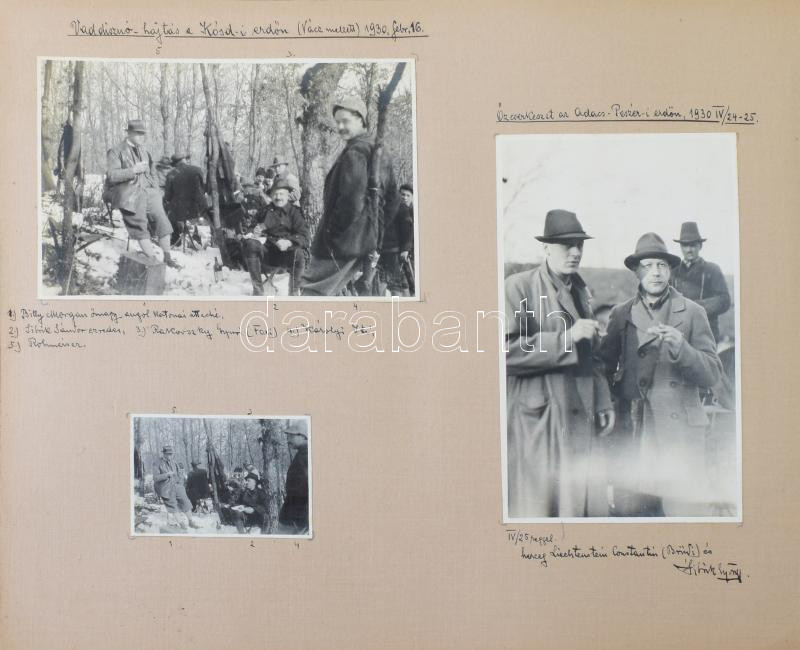 Vaddisznó-hajtás a Kósd-i erdőn (Vácz mellett) 1930. febr. 16.
5 3
2 4
1) Billy Morgan őrnagy, angol katonai attaché.
2) Sibrik Sándor ezredes, 3) Rakovszky (Faki) 4) Károlyi
5) Rohmeiser.
5 3
1 2 4
Őzcserkészet az Adacs-Peszér-i erdőn, 1930 IV/24-25.
IV/25 reggel.
herceg Liechtenstein Constantin és
Sibrik György.
darabanth